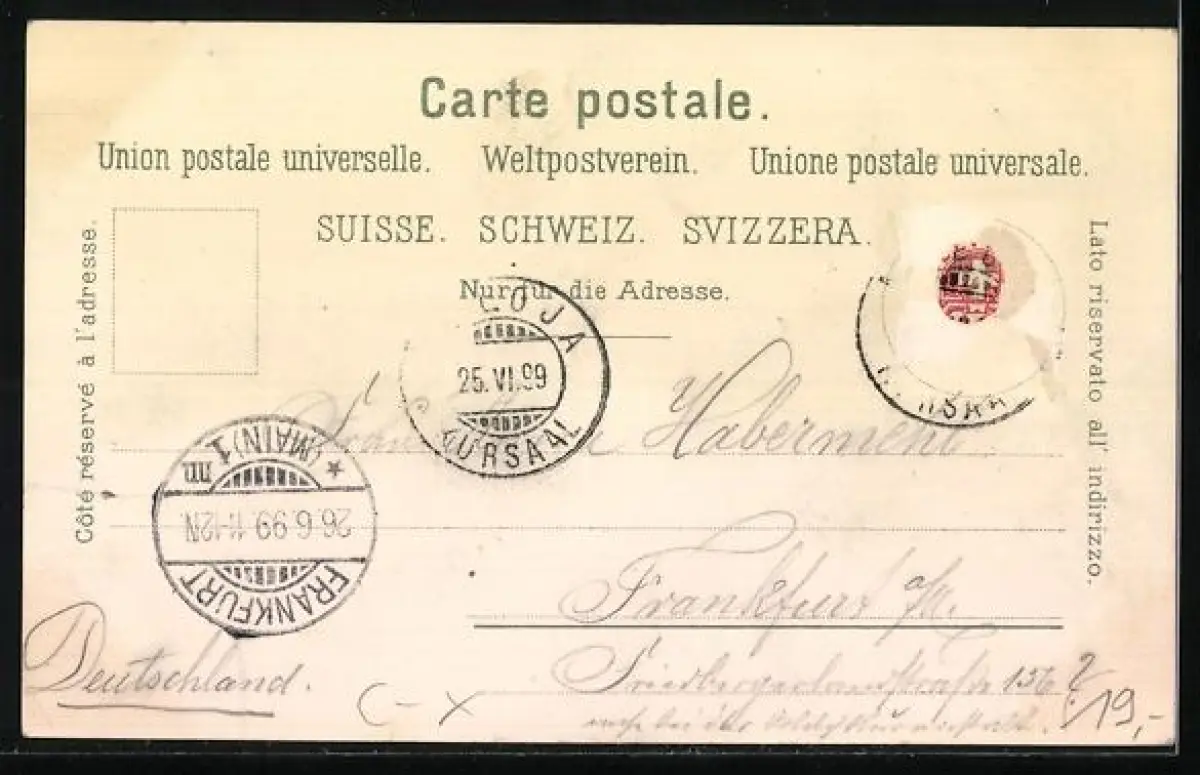 Carte postale.
Union postale universelle. Weltpostverein. Unione postale universale.
SUISSE. SCHWEIZ. SVIZZERA.
Nur für die Adresse.
Côté réservé à l'adresse.
Lato riservato all' indirizzo.
LOJA
25.VI.99
KURSAAL
Habermehl
FRANKFURT
26.6.99.11-12N.
* (MAIN) 1 m
Frankfurt a/M.
Deutschland.
C-X
156
19,-